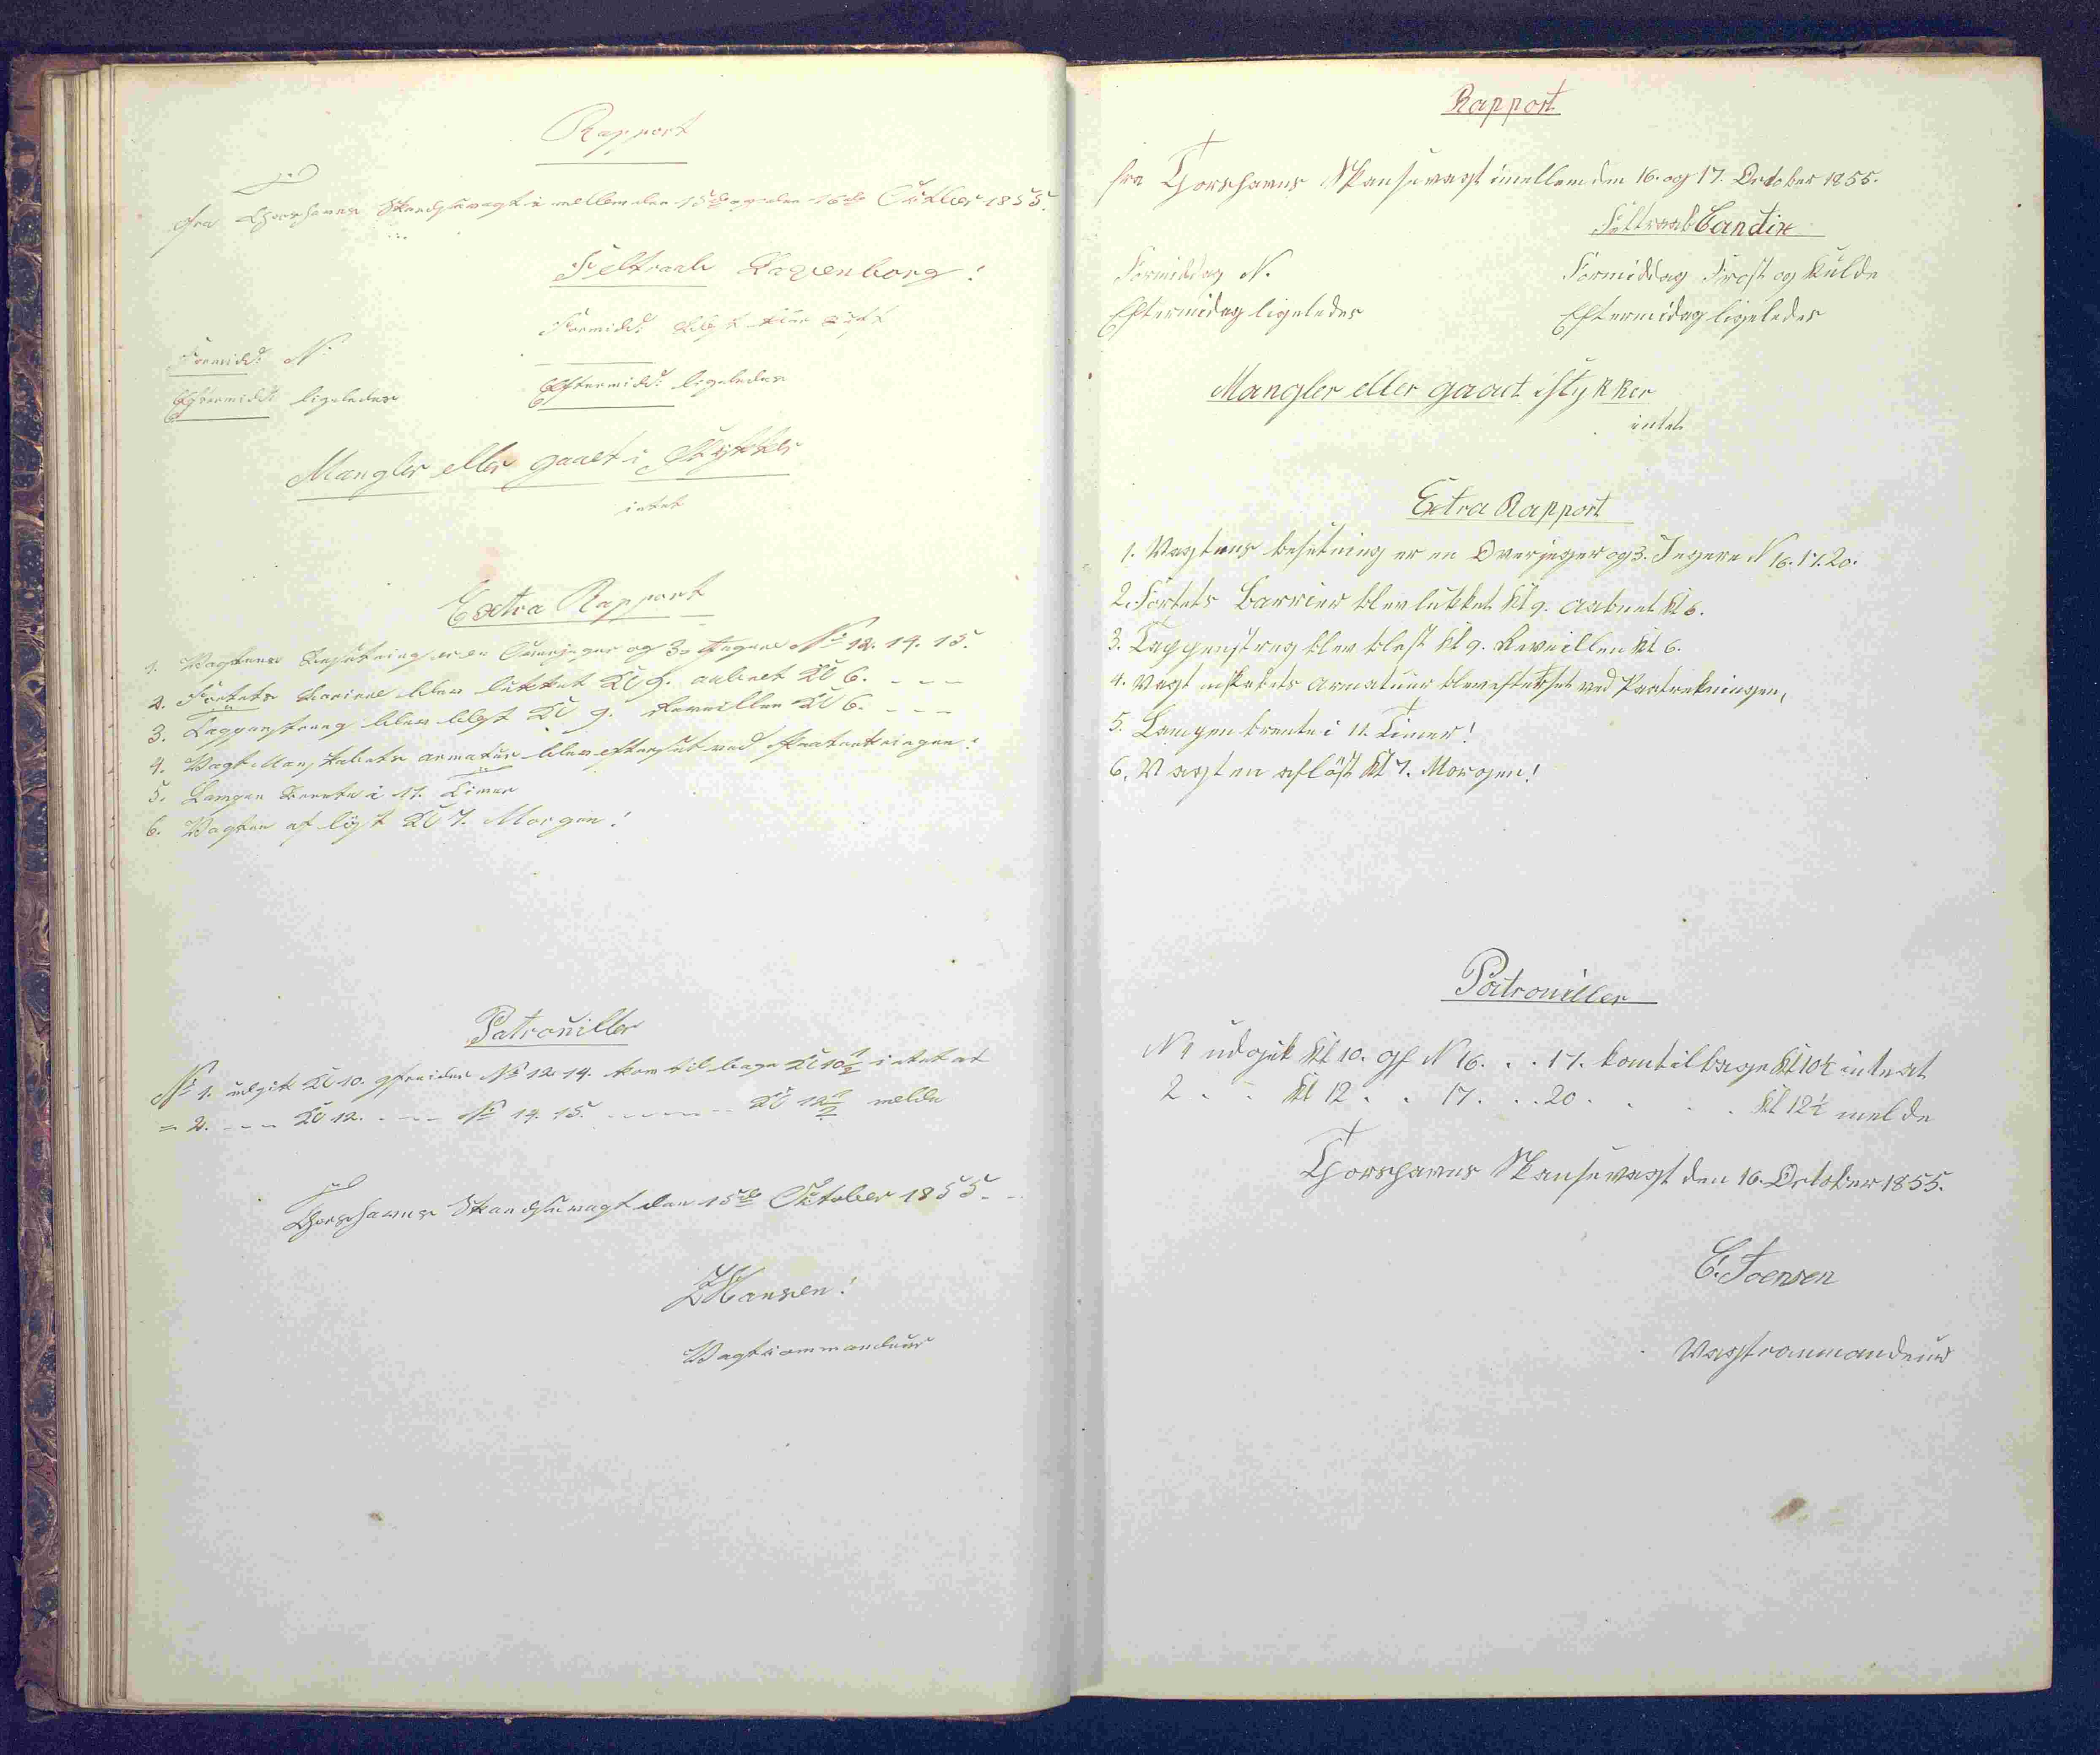 Rapport
fra Thorshavns Skandsevagt imellem den 15de og den 16de October 1855.
Feltraab Lauenborg!
Formidd: N:
Formidd: blæst tüür Luft
Eftermidd: ligeledes
Eftermidd: ligeledes
Mangler eller gaaet i Stykker
intet
Extra Rapport
1. Vagtens Besætning er en Overjæger og 3 Jægere No 12. 14. 15.
2. Fortets Bariere blev lukket Kl 9. aabnet Kl 6. - - -
3. Tappenstreg blev blæst Kl 9. Reveillen Kl 6. - - -
4. Vagt Manskabets armatur blev efterset ved Paatrækningen!
5. Lampen brente i 11. Timer
6. Vagten afløst Kl 7. Morgen!
Patrouiller
No 1. udgik Kl 10. Gefreider No 12. 14. kom tilbage Kl 10 1/2 intet at
= 2. - - - Kl 12. - - - No 14. 15. - - - - - Kl 12 1/2 melde
Thorshavns Skandsevagt den 15de October 1855. -
Z Hansen!
Vagtcommandeur
Rapport
fra Thorshavns Skansevagt imellem den 16. og 17. October 1855.
Feltraab Candix
Formiddag N.
Formiddag Frost og Kulde
Eftermidag ligeledes
Eftermidag ligeledes
Mangler eller gaaet istykker
intet
Extra Rapport
1. Vagtens besetning er en Overjeger og 3. Jegere N 16. 17. 20.
2. Fortets Barrier blev lukket Kl 9. aabnet Kl 6.
3. Tappenstreg blev blest Kl 9. Reveillen Kl 6.
4. Vagtmskabets Armatuur blev efterset ved Paatrekningen,
5. Lampen brente i 11. Timer!
6. Vagten afløst Kl 7. Morgen!
Patrouiller
N 1 udgik Kl 10. gf N 16. . . 17. kom tilbage Kl 10 1/2 inte at
2 . . Kl 12 . . 17. . . 20 . . . . Kl 12 1/2 melde
Thorshavns Skansevagt den 16. October 1855.
E. Joensen
Vagtcommandeur